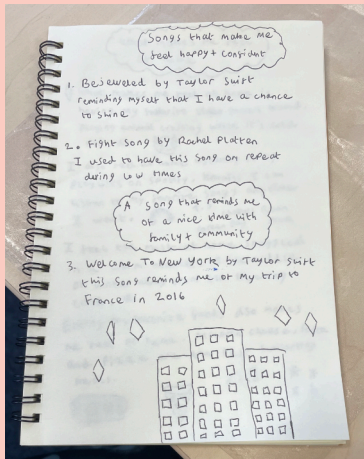 Songs that make me
feel happy + confident
1. Bejeweled by Taylor Swift
reminding myself that I have a chance
to shine
2. Fight Song by Rachel Platten
I used to have this song on repeat
during low times
A song that reminds me
of a nice time with
family + community
3. Welcome To New York by Taylor Swift
this song reminds me of my trip to
France in 2016